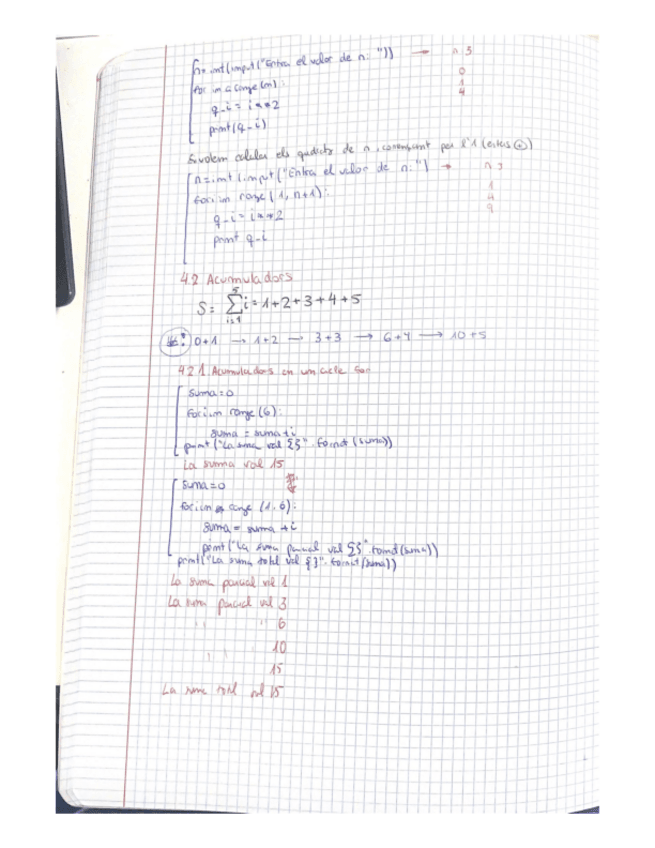 n=int(input("Entra el valor de n: ")) → n 3
for i in range(n): 0
1
q_i = i**2 4
print(q_i)
Si volem calcular els quadrats de n, començant per l'1 (enters ⊕)
n=int(input("Entra el valor de n:") → n 3
for i in range(1, n+1): 1
q_i = i**2 4
print q_i 9
4.2 Acumuladors
S= 5∑i=1 i = 1+2+3+4+5
0+1 → 1+2 → 3+3 → 6+4 → 10+5
4.2.1 Acumuladors en un cicle for
suma=0
for i in range(6):
suma = suma+i
print("La suma val {}".format(suma))
La suma val 15
suma=0
for i in range (1,6):
suma = suma +i
print("La suma parcial val {}".format(suma))
print("La suma total val {}".format(suma))
La suma parcial val 1
La suma parcial val 3
" " 6
" " 10
15
La suma total val 15